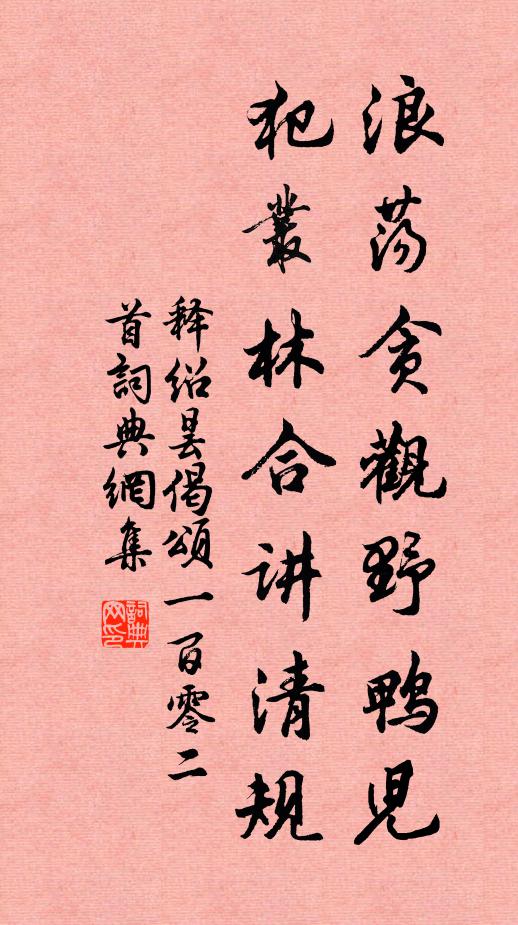 浪荡贪觀野鸭児
犯叢林合讲清规
释绍昙偈頌一百零二
首詞典網集
詞典网印